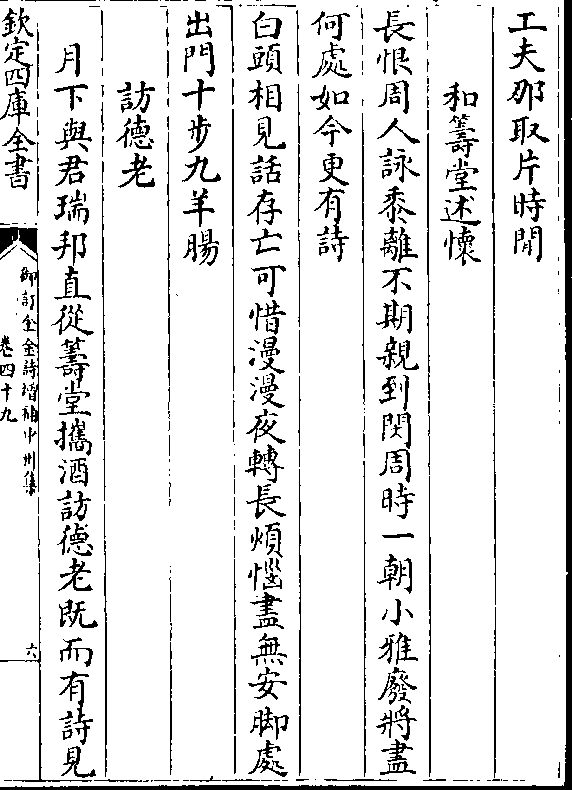 工夫那取片時閒
和籌堂述懷
長恨周人詠黍離不期親到閔周時一朝小雅廢將盡
何處如今更有詩
白頭相見話存亡可惜漫漫夜轉長煩惱盡無安脚處
出門十步九羊腸
訪德老
月下與君瑞邦直從籌堂攜酒訪德老既而有詩見
欽定四庫全書
御訂全金詩增補中州集
卷四十九
六